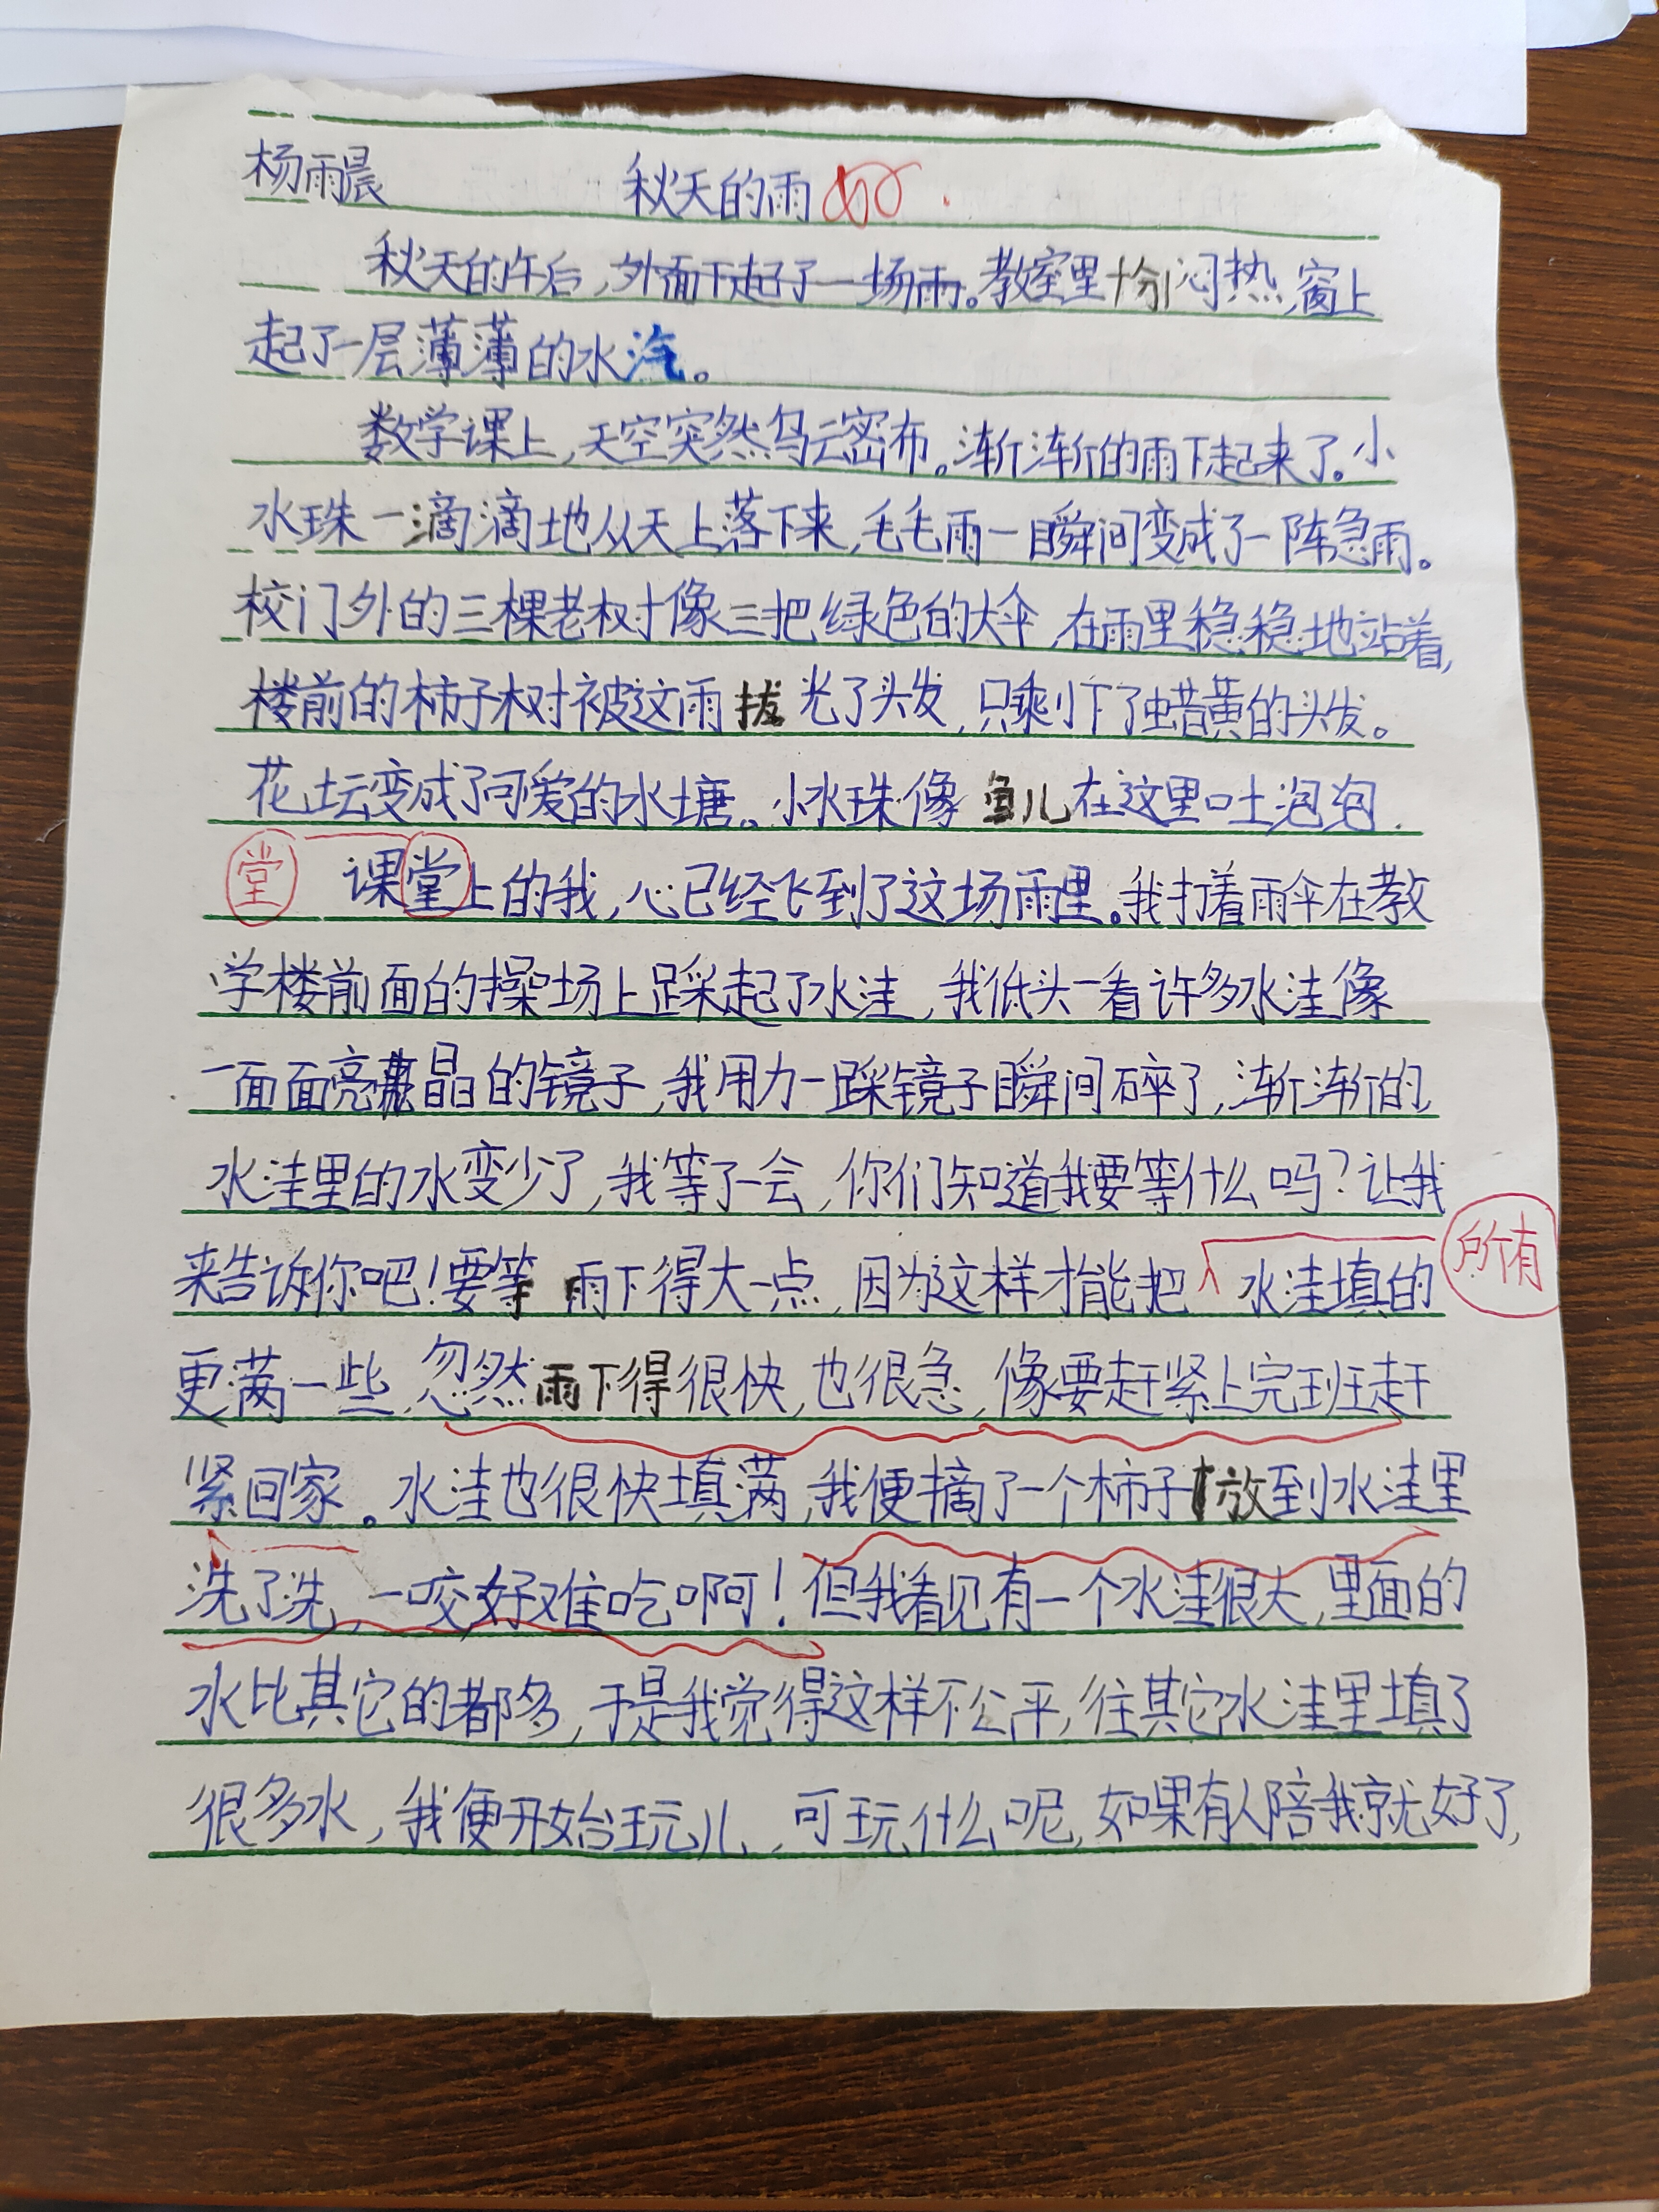 杨雨晨 秋天的雨 好
秋天的午后,外面下起了一场雨。教室里十分闷热,窗上
起了一层薄薄的水汽。
数学课上,天空突然乌云密布。渐渐的雨下起来了。小
水珠一滴滴地从天上落下来,毛毛雨一瞬间变成了一阵急雨。
校门外的三棵老树像三把绿色的大伞,在雨里稳稳地站着,
楼前的柿子树被这雨拔光了头发,只剩下了蜡黄的头发。
花坛变成了可爱的水塘。小水珠像鱼儿在这里吐泡泡.
堂 课堂上的我,心已经飞到了这场雨里。我打着雨伞在教
学楼前面的操场上踩起了水洼,我低头一看许多水洼像
一面面亮晶的镜子,我用力一踩镜子瞬间碎了,渐渐的,
水洼里的水变少了,我等了一会,你们知道我要等什么吗?让我
来告诉你吧!要等雨下得大一点,因为这样才能把水洼填的
所有
更满一些,忽然雨下得很快,也很急,像要赶紧上完班赶
紧回家。水洼也很快填满,我便摘了一个柿子放到水洼里
洗了洗,一咬好难吃啊!但我看见有一个水洼很大,里面的
水比其它的都多,于是我觉得这样不公平,往其它水洼里填了
很多水,我便开始玩儿,可玩什么呢,如果有人陪我就好了,